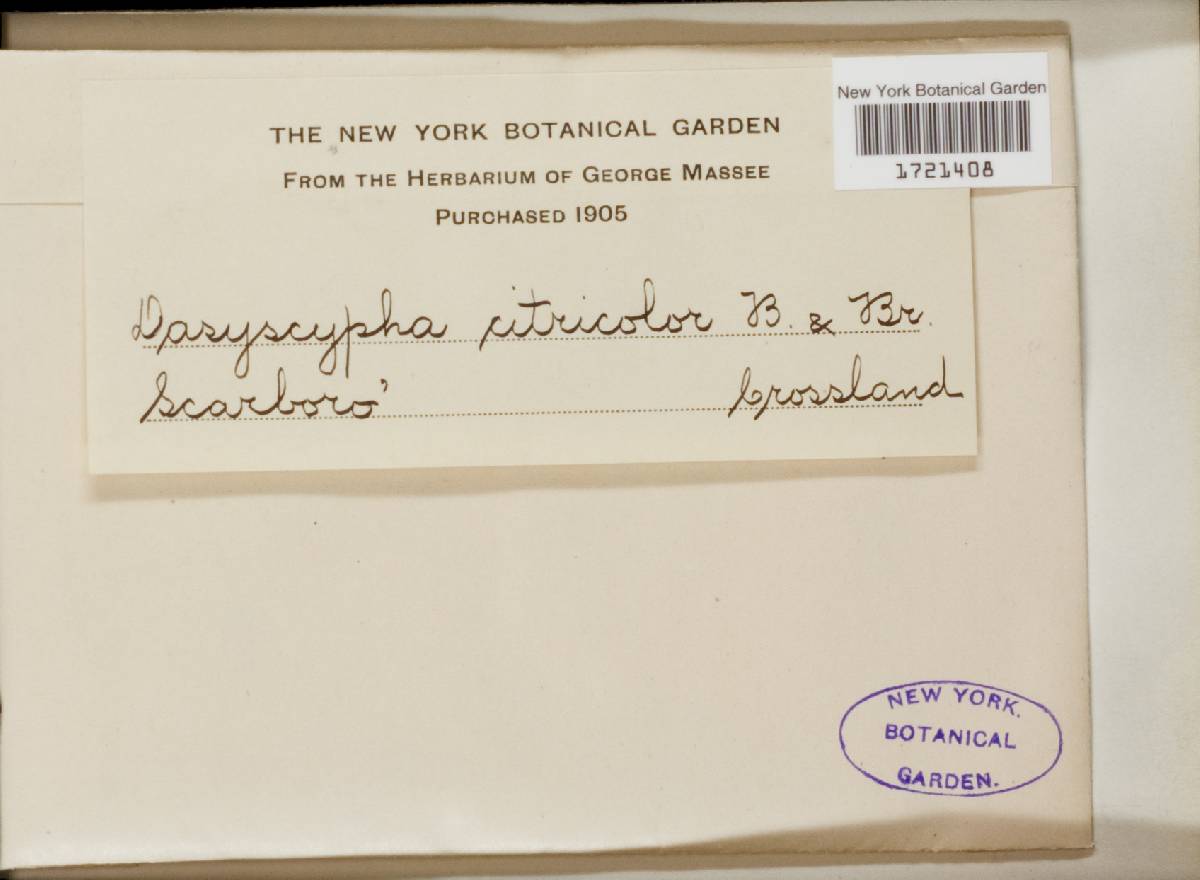 New York Botanical Garden
1721408
THE NEW YORK BOTANICAL GARDEN
FROM THE HERBARIUM OF GEORGE MASSEE
PURCHASED 1905
Dasyscypha citricolor B. & Br.
Scarboro' Crossland
NEW YORK.
BOTANICAL
GARDEN.